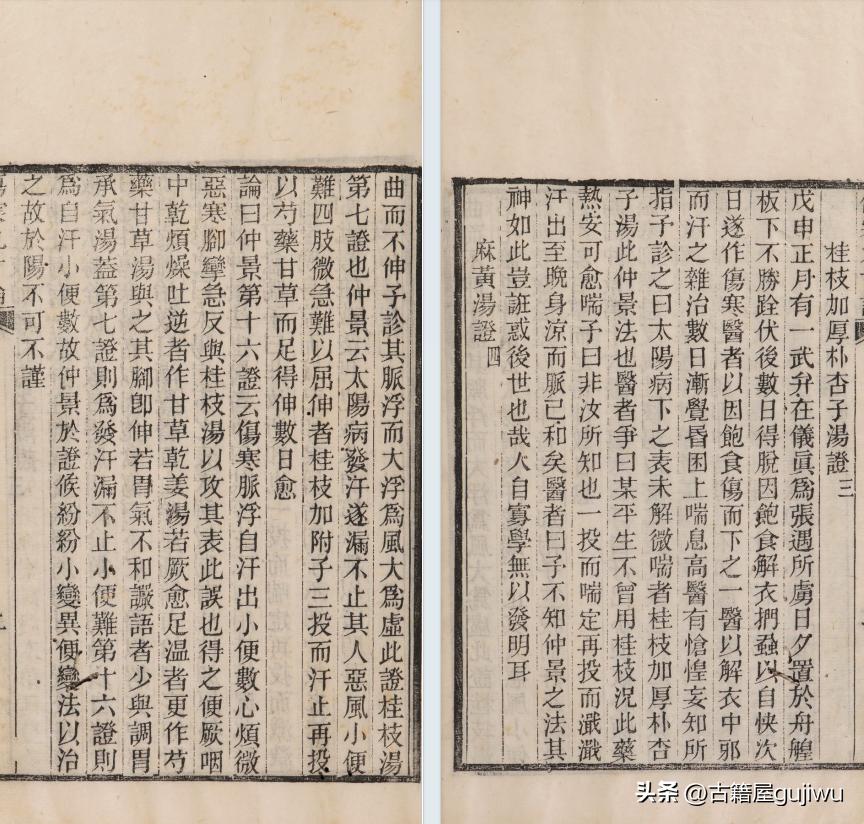 曲而不伸子診其脈浮而大浮爲風大爲虛此證桂枝湯
第七證也仲景云太陽病發汗遂漏不止其人惡風小便
難四肢微急難以屈伸者桂枝加附子三投而汗止再投
以芍藥甘草而足得伸數日愈
論曰仲景第十六證云傷寒脈浮自汗出小便數心煩微
惡寒腳攣急反與桂枝湯以攻其表此誤也得之便厥咽
中乾煩燥吐逆者作甘草乾姜湯若厥愈足温者更作芍
藥甘草湯與之其腳卽伸若胃氣不和譫語者少與調胃
承氣湯蓋第七證則爲發汗漏不止小便難第十六證則
爲自汗小便數故仲景於證候紛紛小變異便變法以治
之故於陽不可不謹
桂枝加厚朴杏子湯證三
戊申正月有一武弁在儀眞爲張遇所虜日夕置於舟艎
板下不勝跧伏後數日得脫因飽食解衣捫蝨以自快次
日遂作傷寒醫者以因飽食傷而下之一醫以解衣中邪
而汗之雜治數日漸覺昏困上喘息高醫有愴惶妄知所
指子診之曰太陽病下之表未解微喘者桂枝加厚朴杏
子湯此仲景法也醫者爭曰某平生不曾用桂枝況此藥
熱安可愈喘子曰非汝所知也一投而喘定再投而濈濈
汗出至晚身涼而脈已和矣醫者曰子不知仲景之法其
神如此豈誑惑後世也哉人自寡學無以發明耳
麻黃湯證四
头条 @古籍屋gujiwu